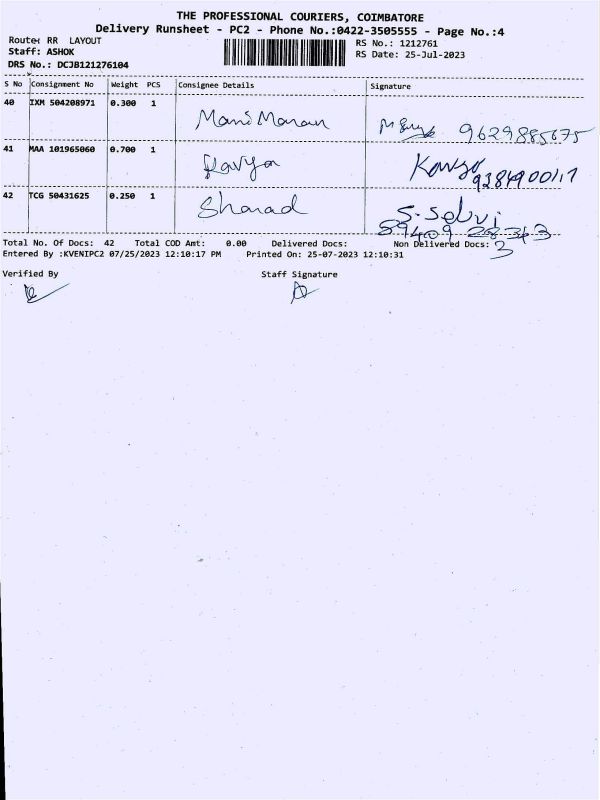 THE PROFESSIONAL COURIERS, COIMBATORE
Delivery Runsheet - PC2 - Phone No.:0422-3505555 - Page No.:4
Route: RR LAYOUT
RS No.: 1212761
Staff: ASHOK
RS Date: 25-Jul-2023
DRS No.: DCJB121276104
S No Consignment No Weight PCS Consignee Details Signature
40 IXM 504208971 0.300 1 Mani Maran 9629885675
41 MAA 101965060 0.700 1 Kavya Kavya
42 TCG 50431625 0.250 1 Sharad S. Selvi
Total No. Of Docs: 42 Total COD Amt: 0.00 Delivered Docs: Non Delivered Docs: 3
Entered By :KVENIPC2 07/25/2023 12:10:17 PM Printed On: 25-07-2023 12:10:31
Verified By Staff Signature